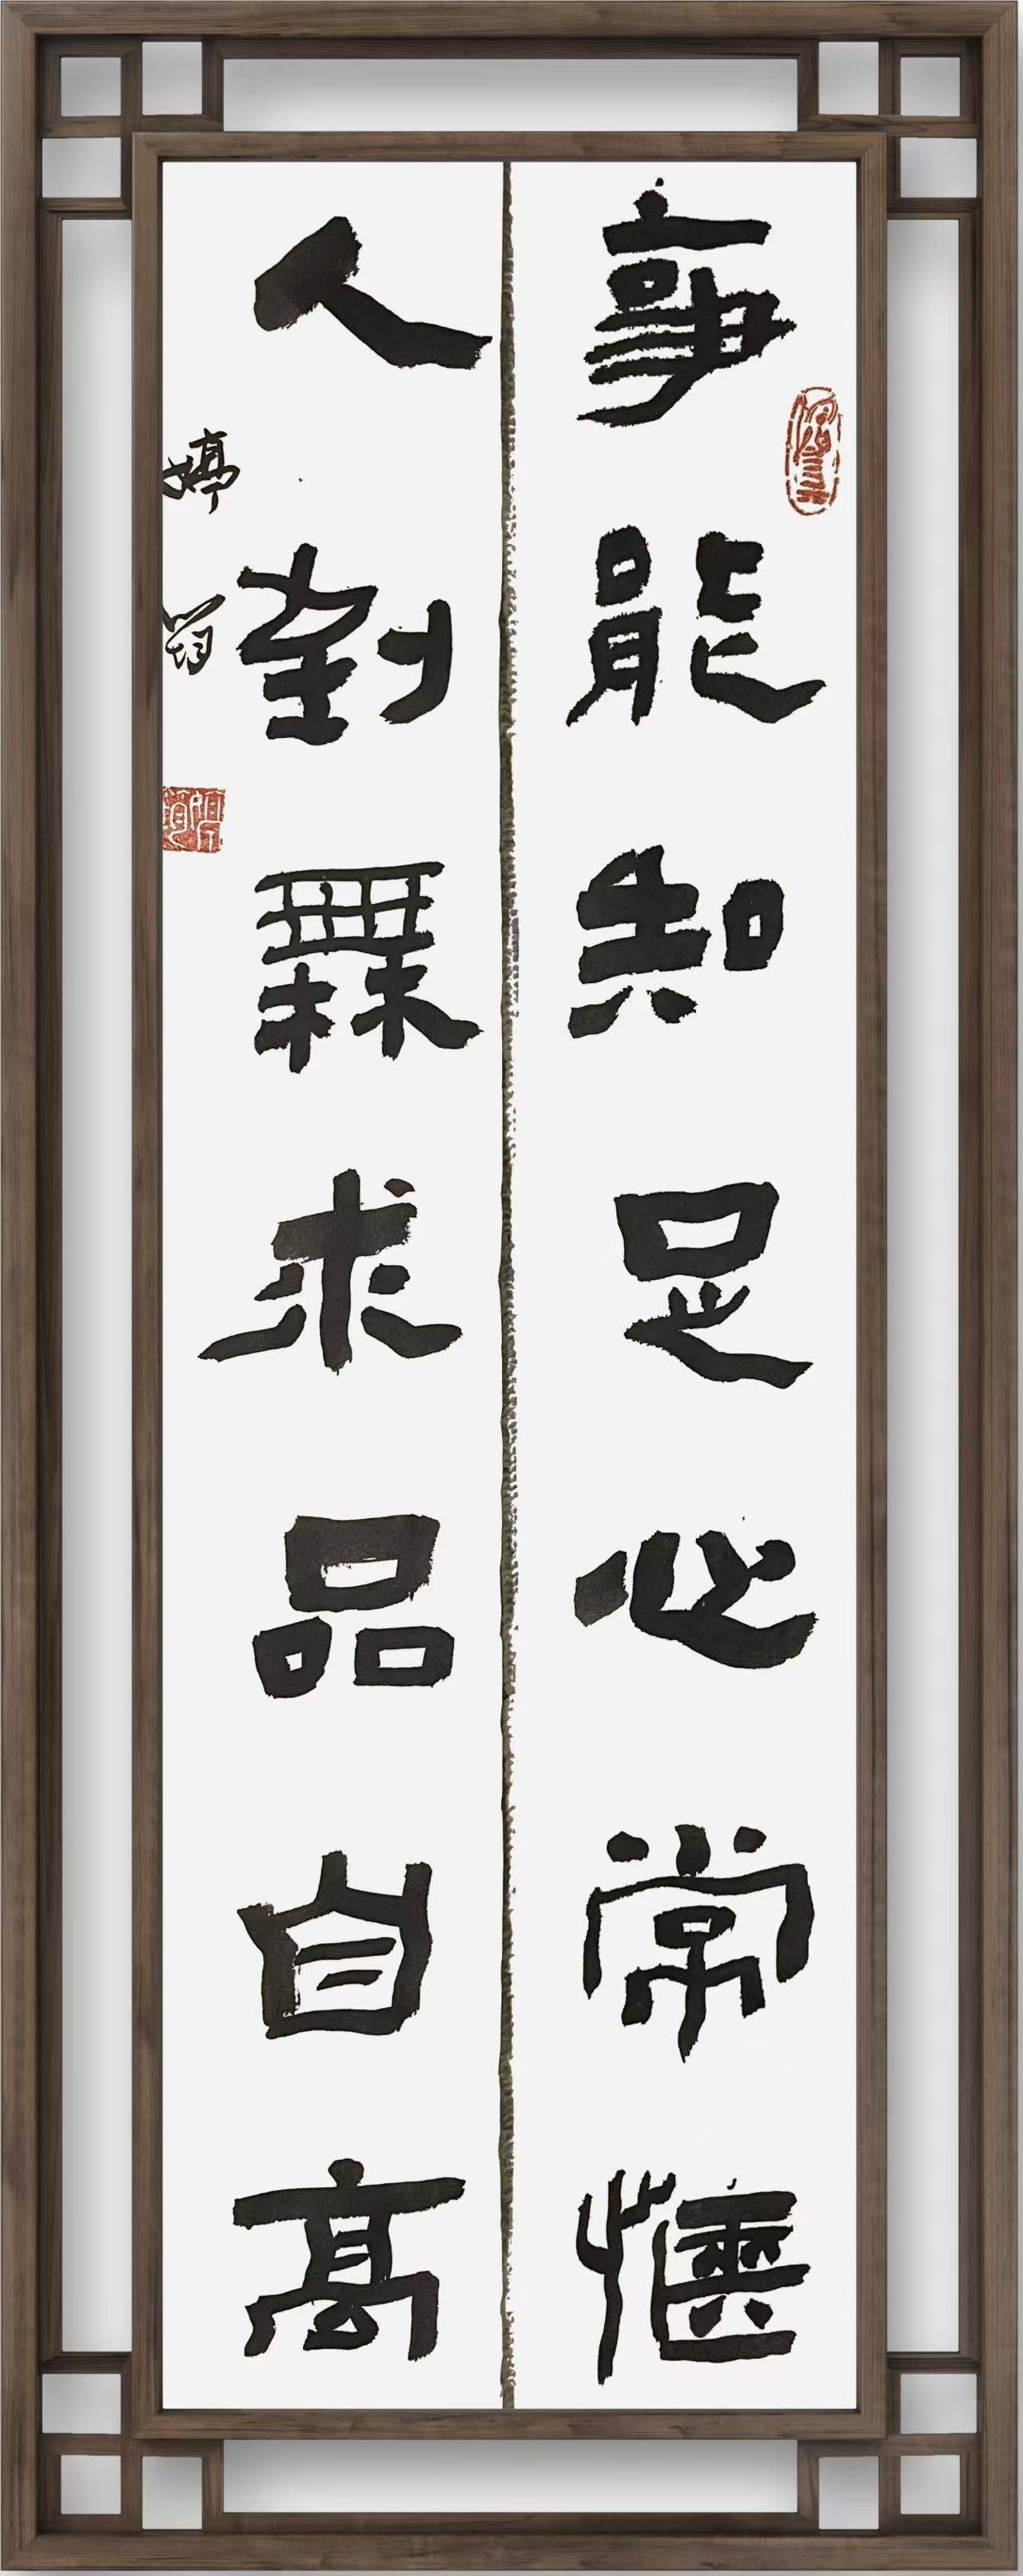 事能知足心常愜
人到無求品自高
婷